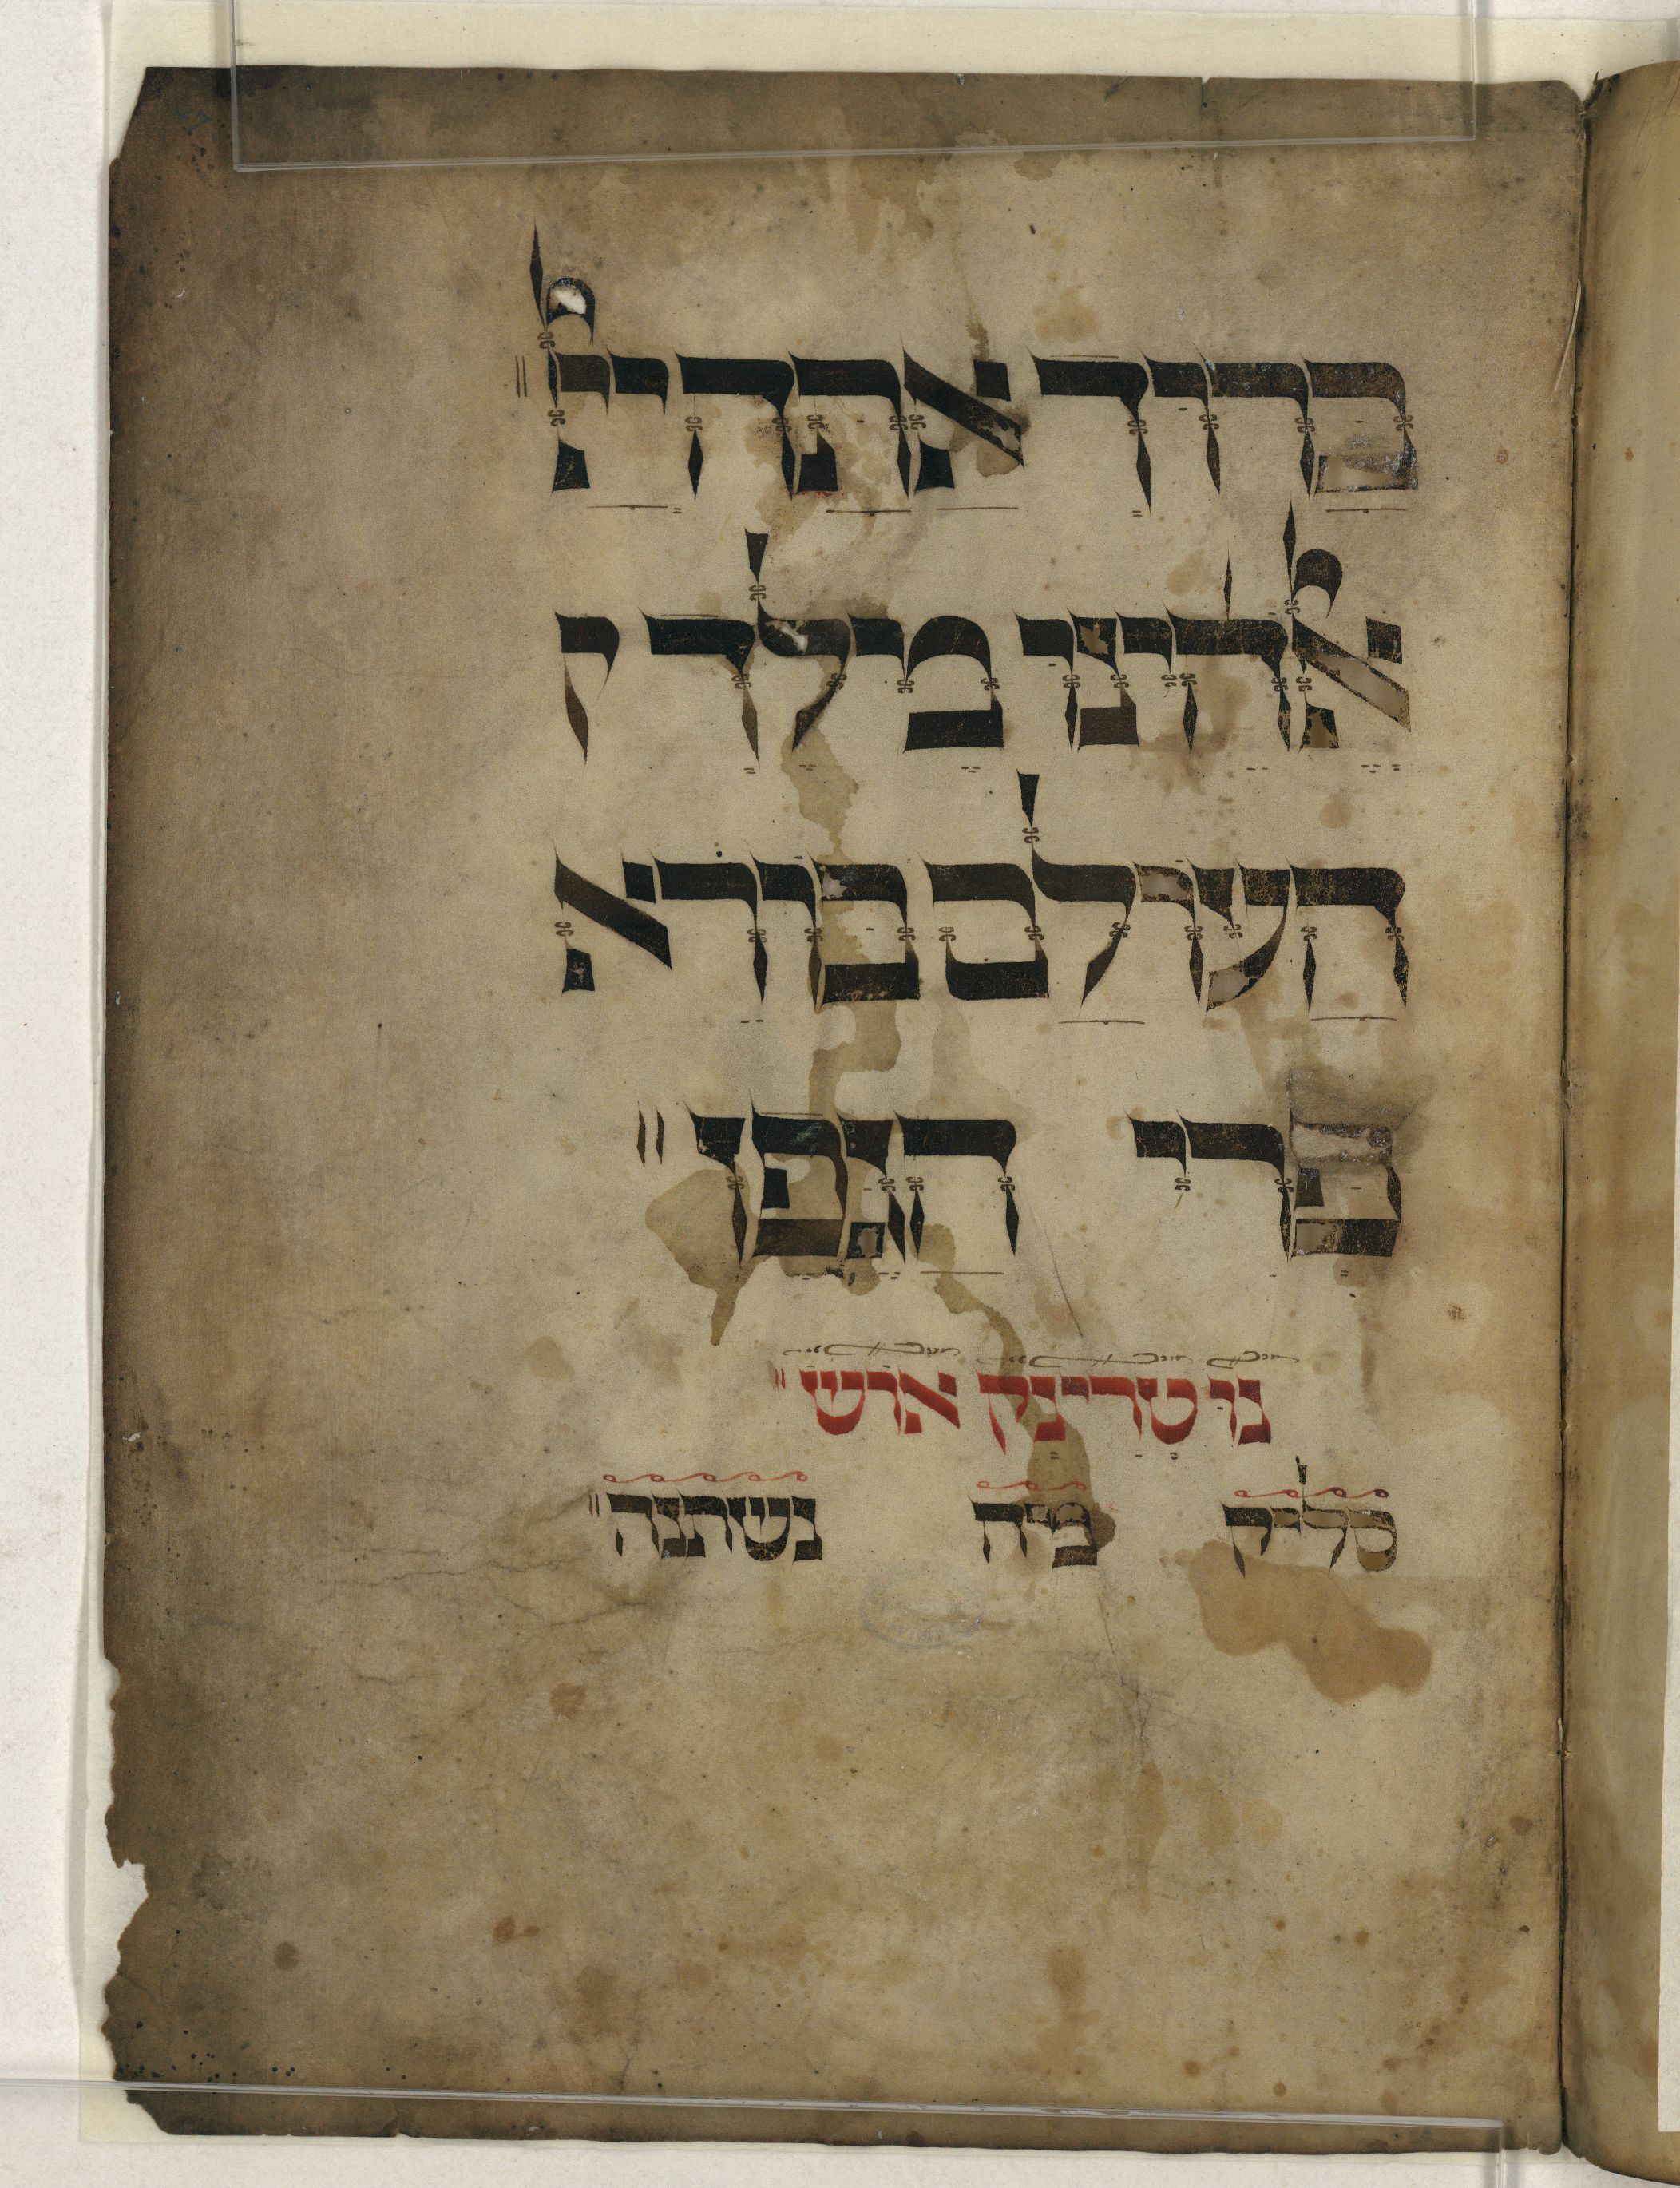 ברוך אתה יי
אלהינו מלך
העולם בורא
פרי הגפן
נו טרינק אוש
סליק מה נשתנה